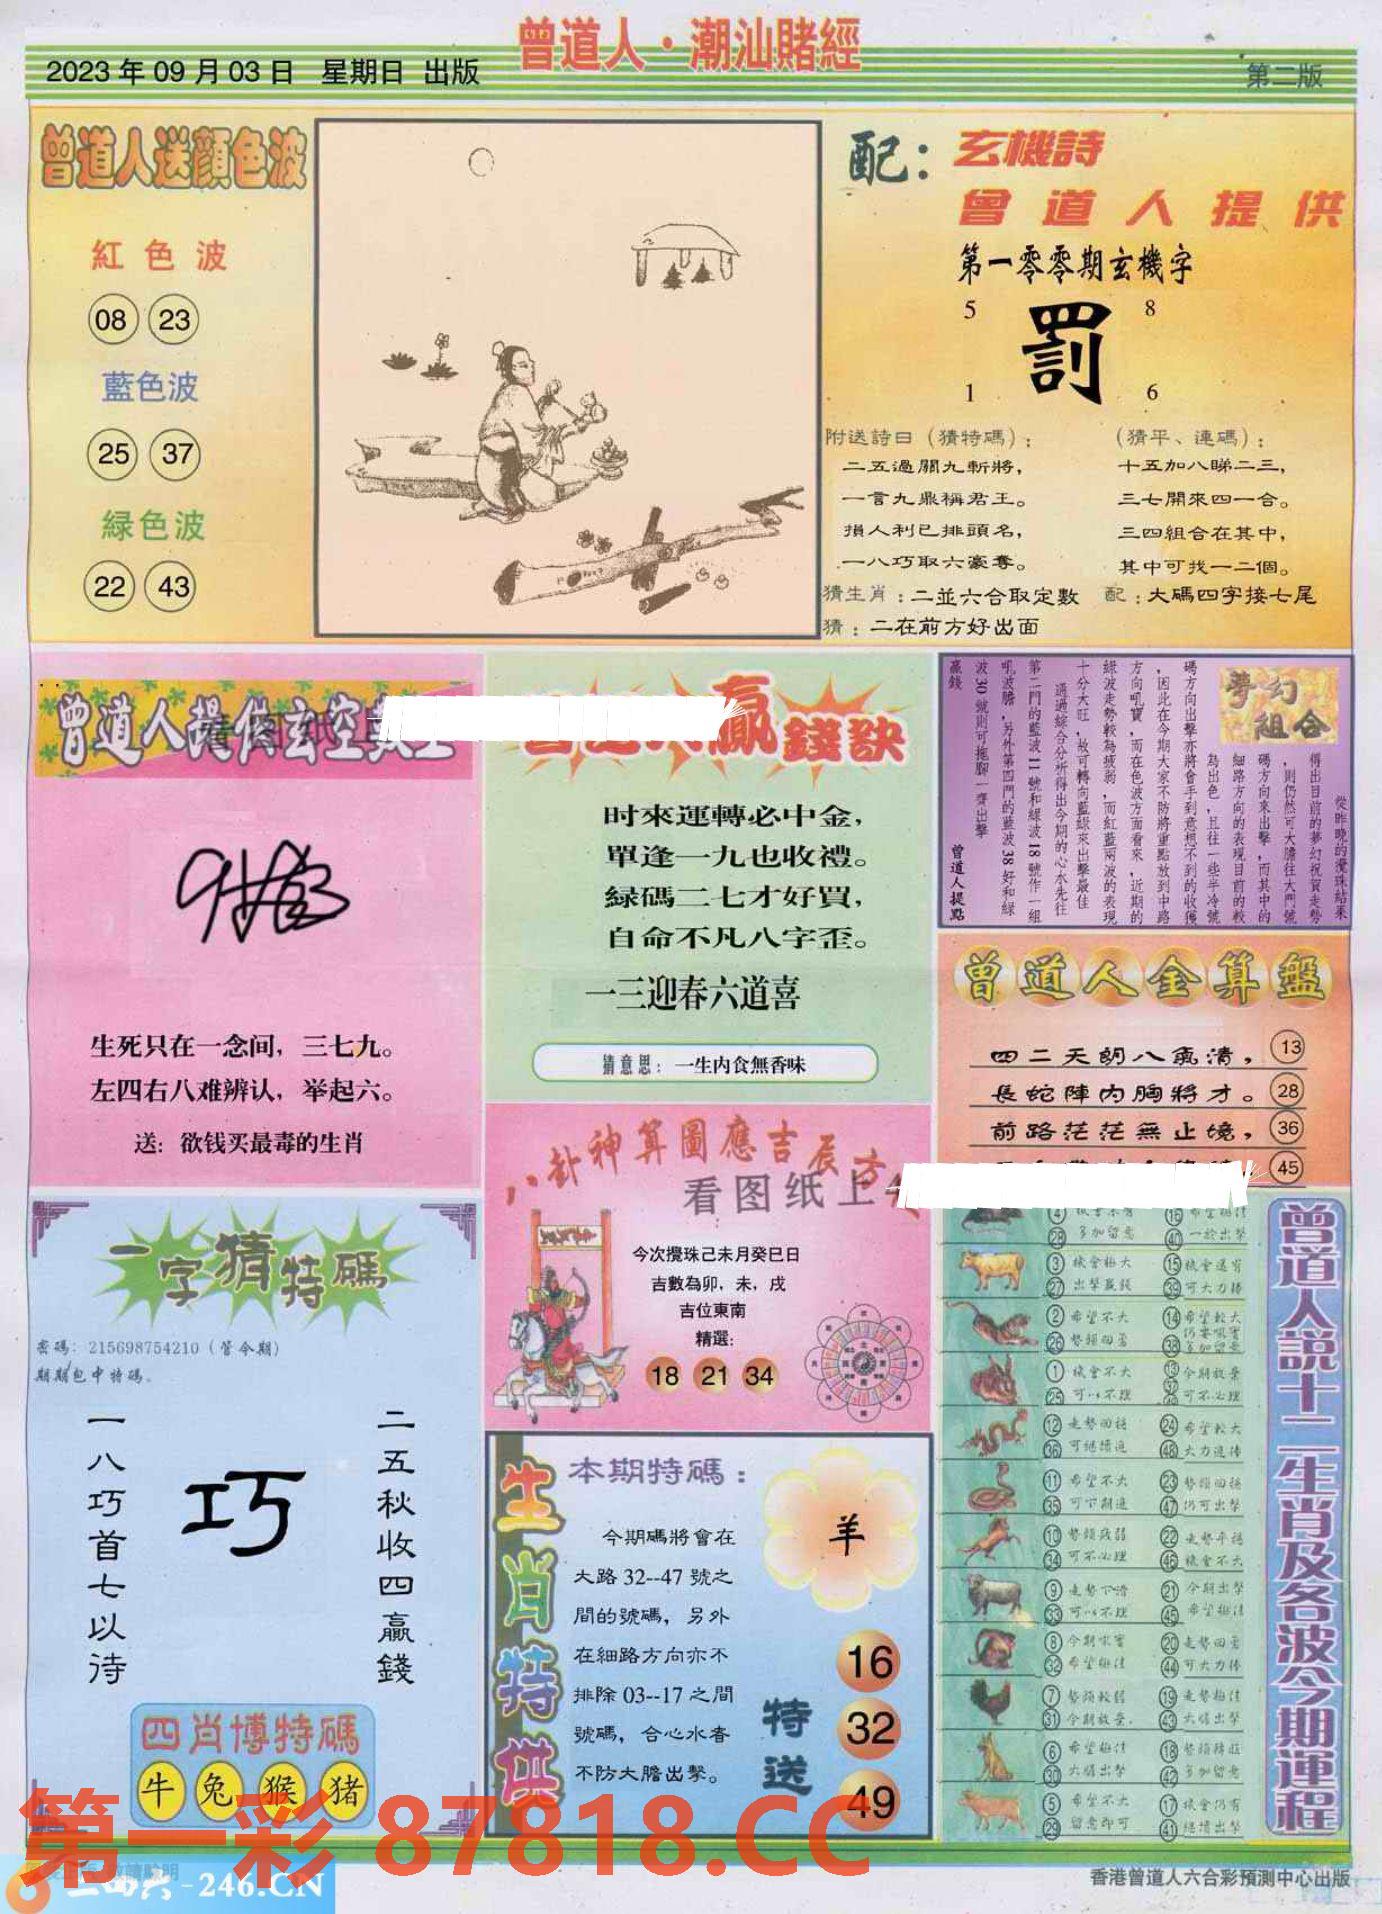 曾道人·潮汕賭經
2023年09月03日 星期日 出版
第二版
曾道人送顏色波
紅色波
08 23
藍色波
25 37
緑色波
22 43
配：玄機詩
曾道人提供
第一零零期玄機字
5 8
罰
1 6
附送詩曰（猜特碼）：
二五過關九斬將，
一言九鼎稱君王。
損人利已排頭名，
一八巧取六豪奪。
（猜平、連碼）：
十五加八睇二三，
三七開來四一合。
三四組合在其中，
其中可找一二個。
猜生肖：二並六合取定數
配：大碼四字接七尾
猜：二在前方好出面
曾道人提供玄空
生死只在一念间，三七九。
左四右八难辨认，举起六。
送：欲钱买最毒的生肖
贏錢訣
时來運轉必中金，
單逢一九也收禮。
緑碼二七才好買，
自命不凡八字歪。
一三迎春六道喜
猜意思：一生内食無香味
夢幻組合
從昨晚的攪珠結果
得出目前的夢幻祝賀走勢
，則仍然可大膽往大門號
碼方向來出擊，而其中的
細路方向的表現目前的較
為出色，且往一些半冷號
碼方向出擊亦將會手到意想不到的收獲
，因此在今期大家不防將重點放到中路
方向吼寶，而在色波方面看來，近期的
緑波走勢較為疲弱，而紅藍兩波的表現
十分大旺，故可轉向藍緑來出擊最佳
通過綜合分析得出今期的心水先往
第二門的藍波11號和緑波18號作一組
吼波膽，另外第四門的藍波38好和緑
波30號則可拖腳一齊出擊
贏錢
曾道人提點
曾道人金算盤
四二天朗八氣清， 13
長蛇陣内胸將才。 28
前路茫茫無止境， 36
45
八卦神算圖應吉辰方
看图纸上
今次攪珠己未月癸巳日
吉數為卯，未，戌
吉位東南
精選：
18 21 34
一字猜特碼
密碼：215698754210（管今期）
期期包中特碼。
一八巧首七以待
巧
二五秋收四贏錢
四肖博特碼
牛 兔 猴 猪
生肖特供
本期特碼：
今期碼將會在
大路32--47號之
間的號碼，另外
在細路方向亦不
排除03--17之間
號碼，合心水者
不防大膽出擊。
羊
特送
16
32
49
曾道人説十二生肖及各波今期運程
④ ⑯ 希望極佳
㉘ 多加留意 ㊵ 一於出擊
③ 機會極大 ⑮ 機會還有
㉗ 出擊贏錢 ㊴ 可大力捧
② 希望不大 ⑭ 希望較大
㉖ 勢頭回落 ㊳
① 機會不大 ⑬ 今期放棄
㉕ 可以不理 可不必理
⑫ 走勢回穩 ㉔ 希望較大
㊱ 可繼續追 ㊽ 大力追捧
⑪ 希望不大 ㉓ 勢頭回穩
㉟ 可下期追 ㊼ 仍可出擊
⑩ 勢頭疲弱 ㉒ 走勢平穩
㉞ 可不必理 ㊻ 機會不大
⑨ 走勢下滑 ㉑ 今期出擊
㉝ 可以不理 ㊺ 希望極佳
⑧ 今期吼寶 ⑳ 走勢回勇
㉜ 希望極佳 ㊹ 可大力捧
⑦ 勢頭較弱 ⑲ 走勢極佳
㉛ 今期放棄. ㊸ 大膽出擊
⑥ 希望極佳 ⑱
㉚ 大膽出擊 ㊷ 多加留意
⑤ 希望不大 ⑰ 機會仍有
㉙ 留意即可 ㊶ 繼續出擊
第一彩 87818.CC
二四六-246.CN
香港曾道人六合彩預測中心出版